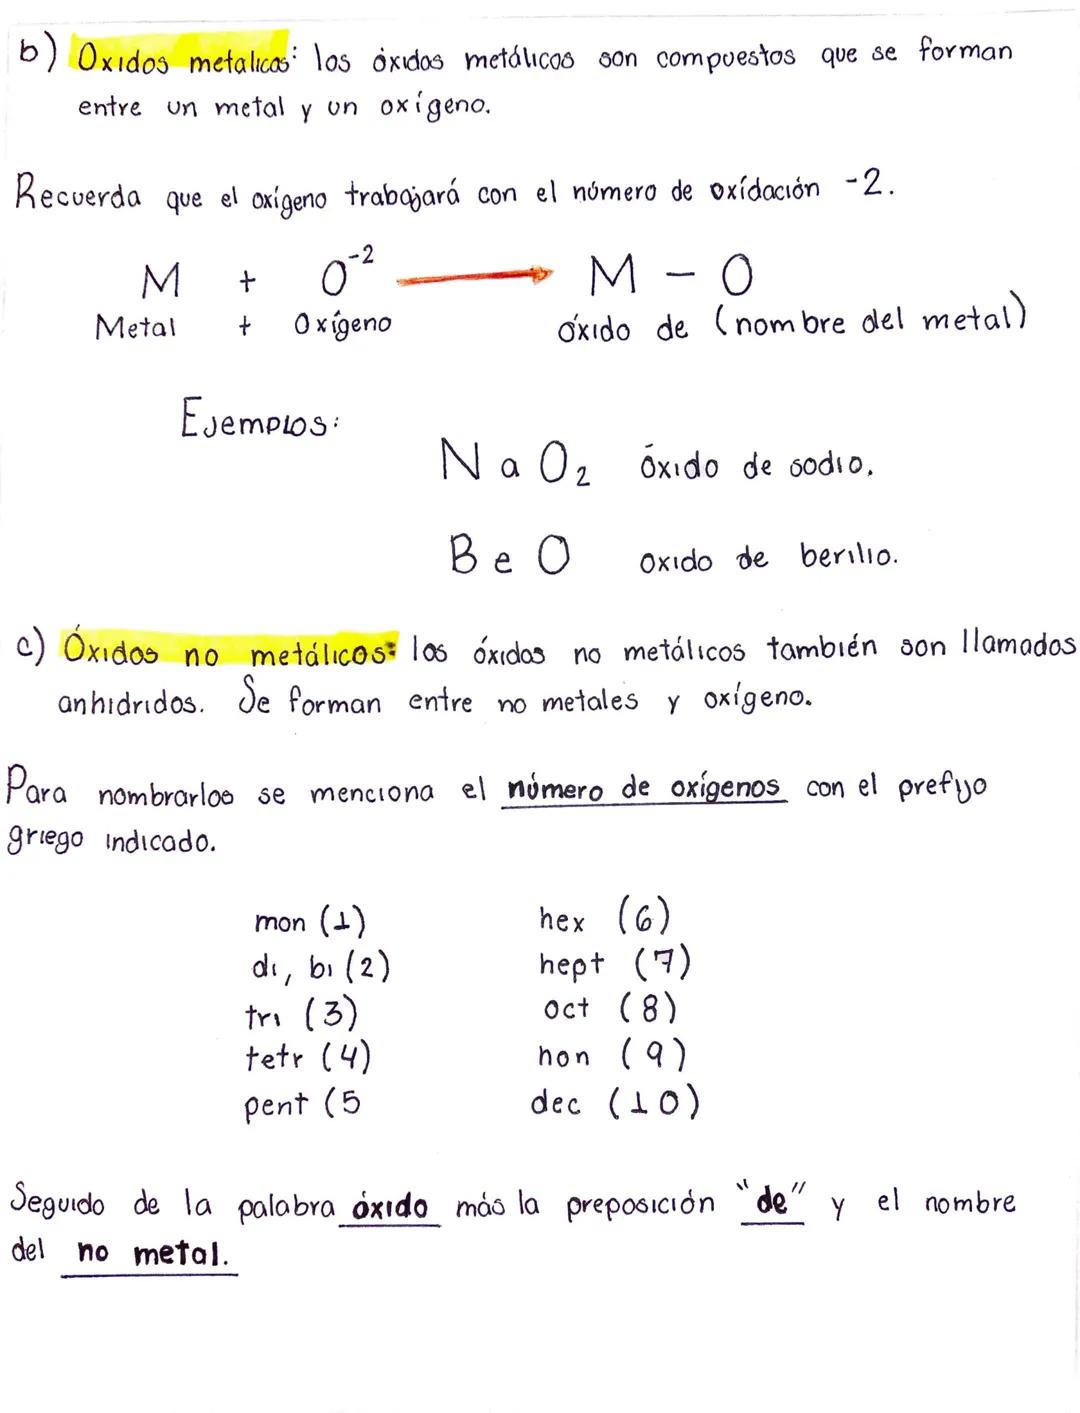 b) Oxidos metalicos: los óxidos metálicos son compuestos que se forman
entre un metal y un oxígeno.
Recuerda que el oxígeno trabajará con el número de oxidación -2.
M + O⁻² → M - O
Metal + Oxígeno óxido de (nombre del metal)
Ejemplos:
NaO₂ óxido de sodio.
BeO oxido de berilio.
c) Óxidos no metálicos: los óxidos no metálicos también son llamados
anhidridos. Se forman entre no metales y oxígeno.
Para nombrarlos se menciona el número de oxígenos con el prefijo
griego indicado.
mon (1) hex (6)
di, bi (2) hept (7)
tri (3) oct (8)
tetr (4) non (9)
pent (5 dec (10)
Seguido de la palabra óxido más la preposición "de" y el nombre
del no metal.